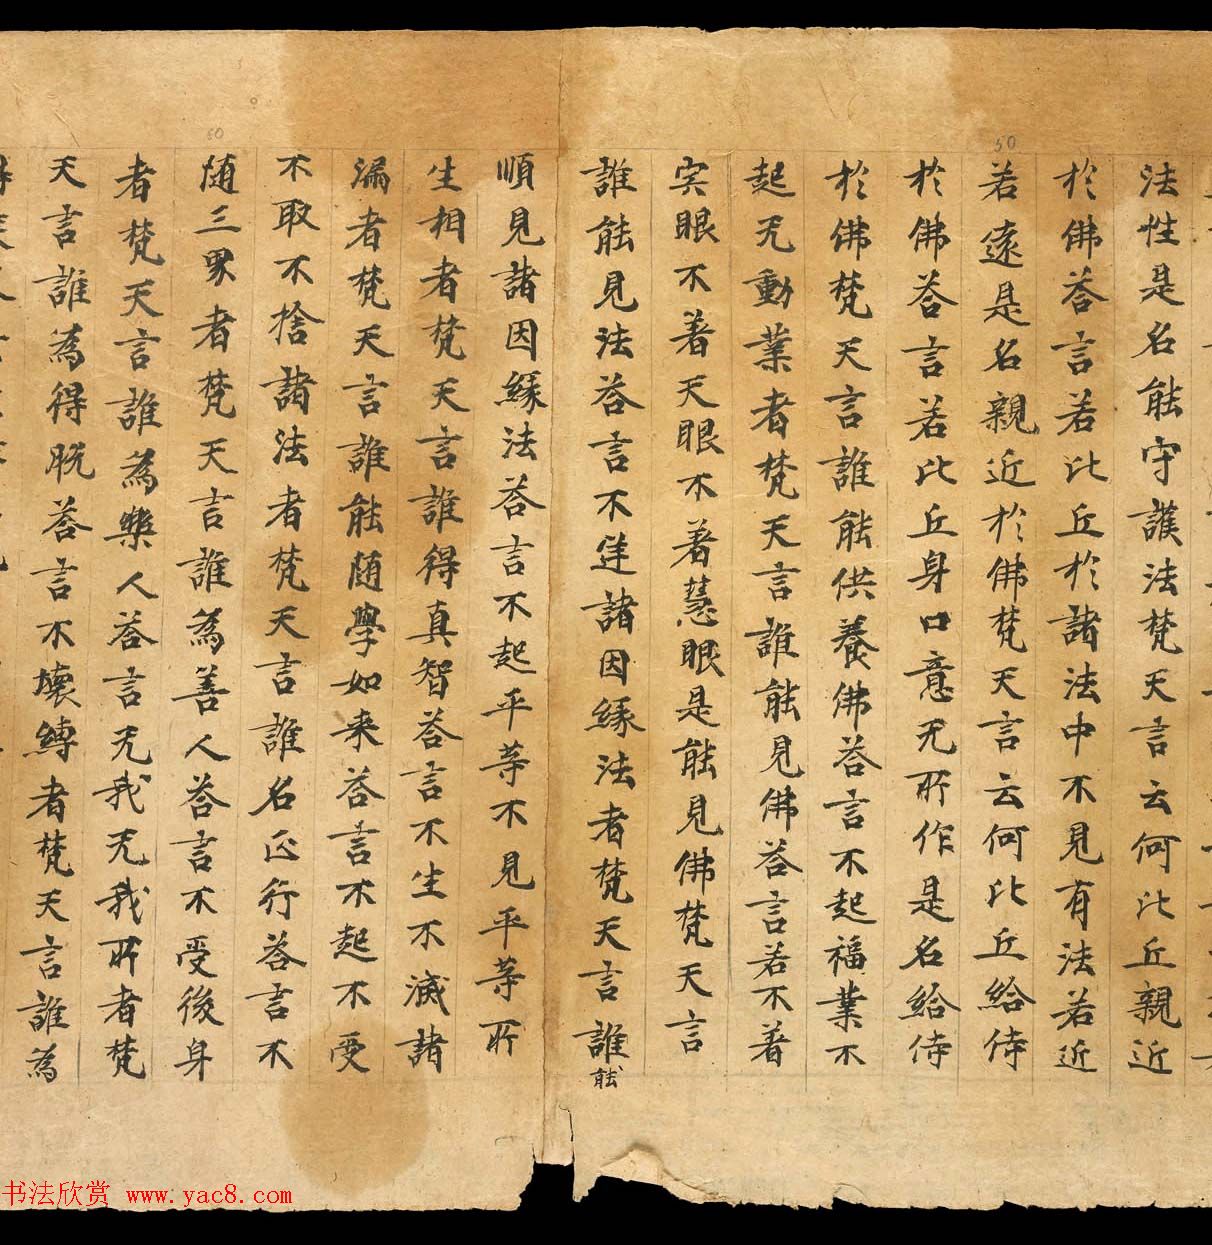 法性是名能守護法梵天言云何比丘親近
於佛荅言若比丘於諸法中不見有法若近
若遠是名親近於佛梵天言云何比丘給侍
於佛荅言若比丘身口意无所作是名給侍
於佛梵天言誰能供養佛荅言不起福業不
起无動業者梵天言誰能見佛荅言若不著
宍眼不著天眼不著慧眼是能見佛梵天言
誰能見法荅言不逆諸因緣法者梵天言誰能
順見諸因緣法荅言不起平等不見平等所
生相者梵天言誰得真智荅言不生不滅諸
漏者梵天言誰能随學如来荅言不起不受
不取不捨諸法者梵天言誰名正行荅言不
随三界者梵天言誰為善人荅言不受後身
者梵天言誰為樂人荅言无我无我所者梵
天言誰為得脱荅言不壞縛者梵天言誰為
50
60
书法欣赏 www.yac8.com